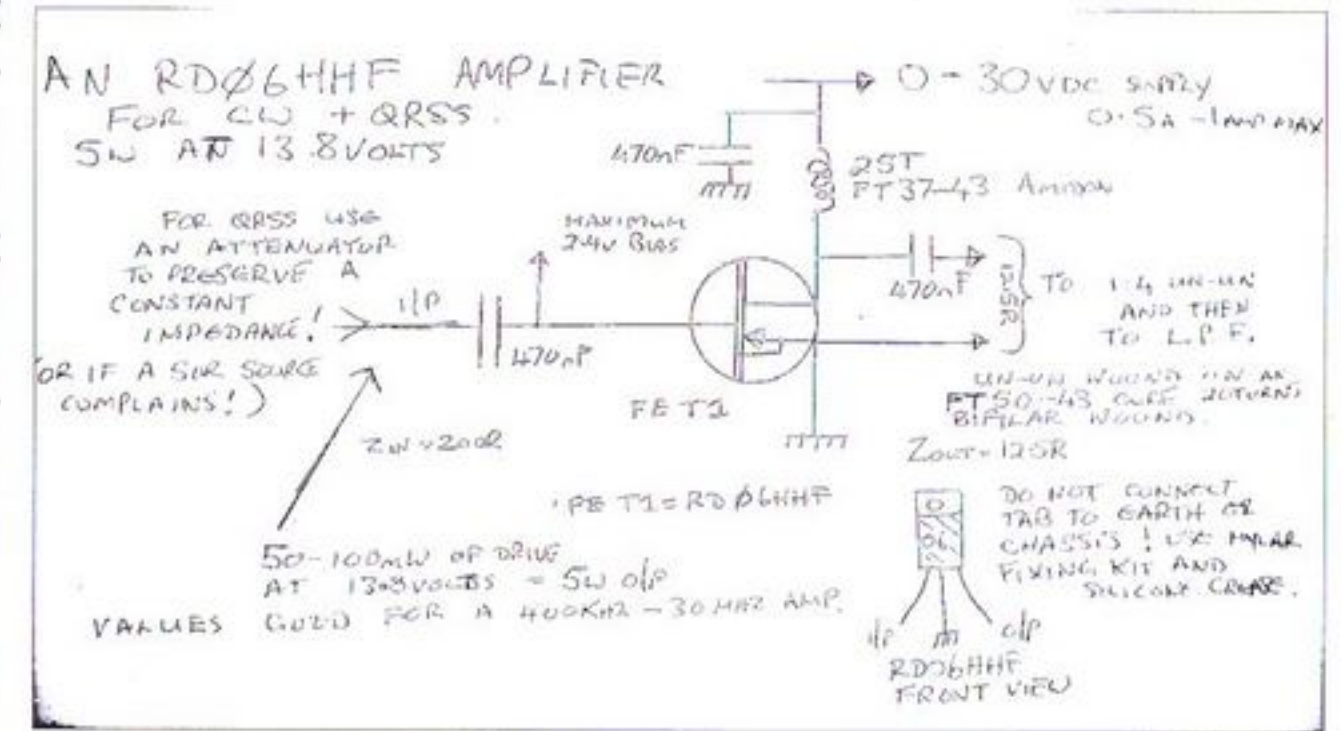 AN RDØ6HHF AMPLIFIER
FOR CW + QRSS.
5W AT 13.8VOLTS
0-30VDC SUPPLY
0.5A-1AMP MAX
470nF
25T
FT37-43 AMIDON
FOR QRSS USE
AN ATTENUATOR
TO PRESERVE A
CONSTANT
IMPEDANCE!
(OR IF A SOURCE
COMPLAINS!)
I/P
470nF
MAXIMUM
BIAS
FET1
470nF
12.5R
TO 1:4 UN-UN
AND THEN
TO L.P.F.
UN-UN WOUND ON AN
FT50-43 CORE TURNS
BIFILAR WOUND.
ZIN=200R
FET1=RDØ6HHF
50-100mW OF DRIVE
AT 13.8VOLTS = 5W O/P
VALUES GOOD FOR A 400KHZ-30MHZ AMP.
DO NOT CONNECT
TAB TO EARTH OR
CHASSIS! USE MYLAR
FIXING KIT AND
SILICONE GREASE.
06
I/P
O/P
RD06HHF
FRONT VIEW